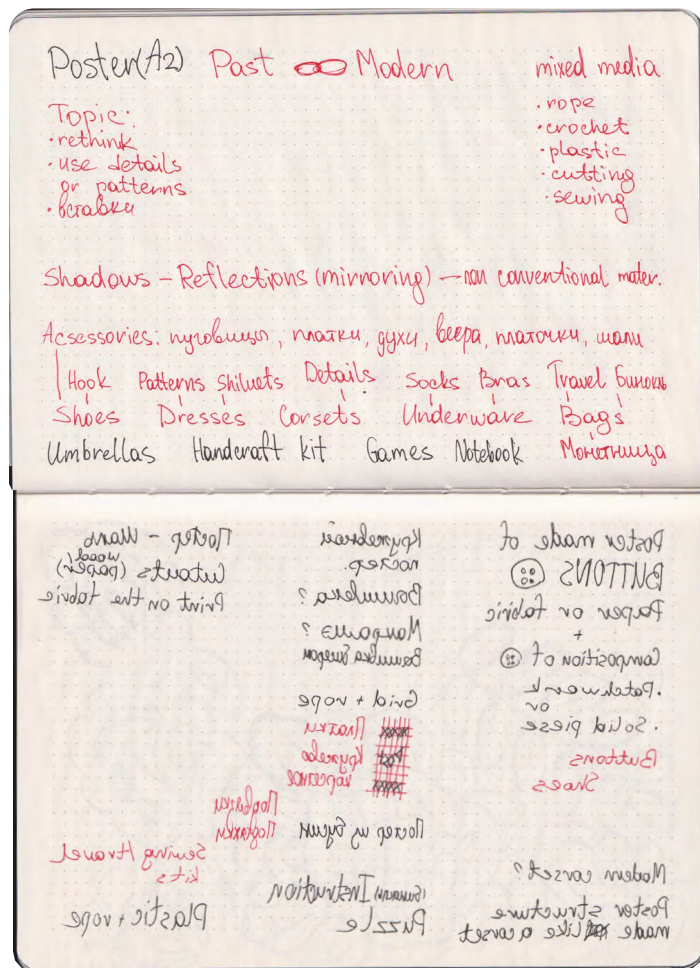 Poster (A2) Past Modern mixed media
Topic:
· rethink
· use details
or patterns
· вставки
· rope
· crochet
· plastic
· cutting
· sewing
Shadows – Reflections (mirroring) – non conventional mater.
Acsessories: пуговицы, платки, духи, веера, платочки, шали
Hook Patterns Shiluets Details Socks Bras Travel Бинокль
Shoes Dresses Corsets Underware Bags
Umbrellas Handcraft kit Games Notebook Монетница
Poster made of
BUTTONS
Paper or fabric
+
Composition of
· Patchwork
or
· Solid piese
Buttons
Shoes
Modern corset?
Poster structure
made like a corset
Кружевной
постер.
Вышивка?
Макраме?
Вышивка бисером
Grid + rope
Платки
Кружево
корсетное
Подвязки
Подтяжки
Постер из бусин
Instruction
Puzzle
Постер – Шаль
Cutouts (paper)
wood
Print on the fabric
Sewing travel
kits
Plastic + rope